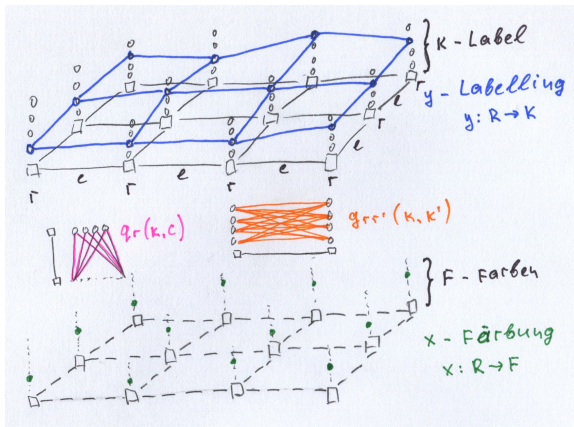 K - Label
y - Labelling
y: R → K
e
e
r
r
e
e
e
r
r
r
r
qr(K,C)
grr'(K,K')
F - Farben
x - Färbung
x: R → F